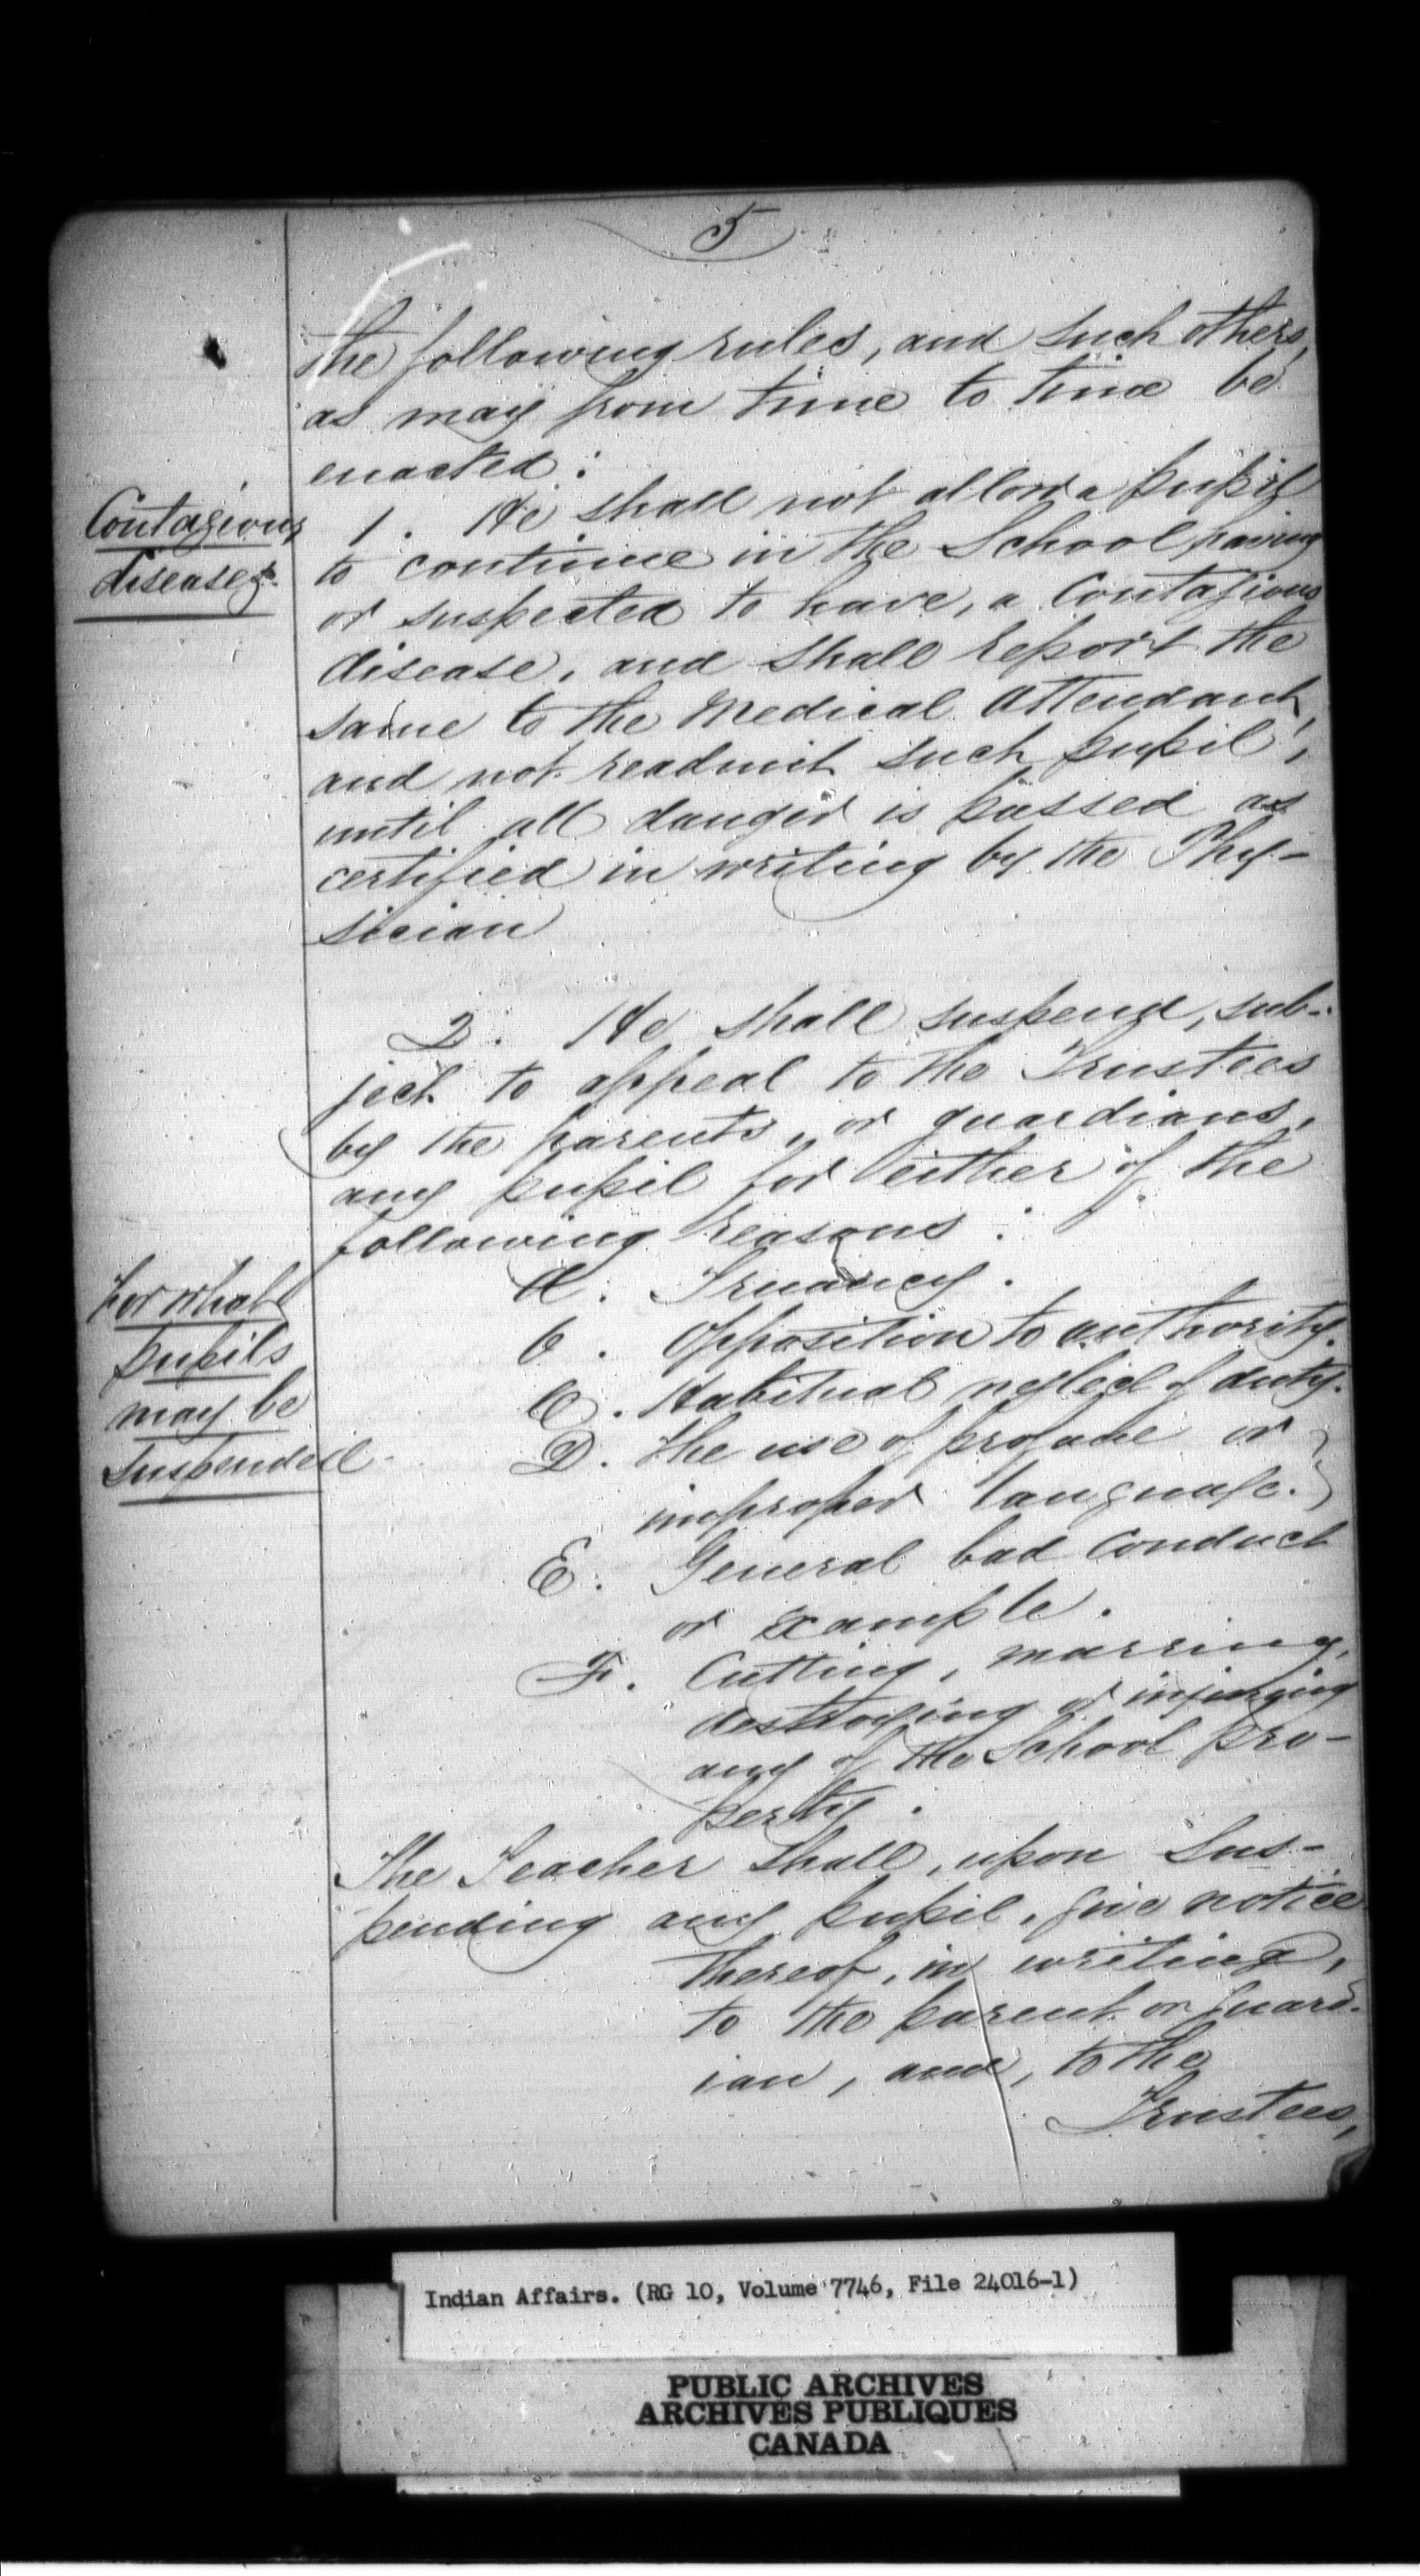 5
the following rules, and such others,
as may from time to time be
enacted:
Contagious
diseases.
1. He shall not allow a pupil
to continue in the School having
or suspected to have, a Contagious
disease, and shall report the
same to the Medical Attendant,
and not readmit such pupil,
until all danger is passed as
certified in writing by the Phy-
sician
2. He shall suspend, sub-
ject to appeal to the Trustees
by the parents, or guardians,
any pupil for either of the
following reasons:
For what
pupils
may be
suspended.
A. Truancy.
B. Opposition to authority.
C. Habitual neglect of duty.
D. The use of profane or
improper language.
E. General bad conduct
or example.
F. Cutting, marring,
destroying or injuring
any of the School pro-
perty.
The Teacher shall, upon Sus-
pending any pupil, give notice
thereof, in writing,
to the parent or guard-
ian, and, to the
Trustees,
Indian Affairs. (RG 10, Volume 7746, File 24016-1)
PUBLIC ARCHIVES
ARCHIVES PUBLIQUES
CANADA